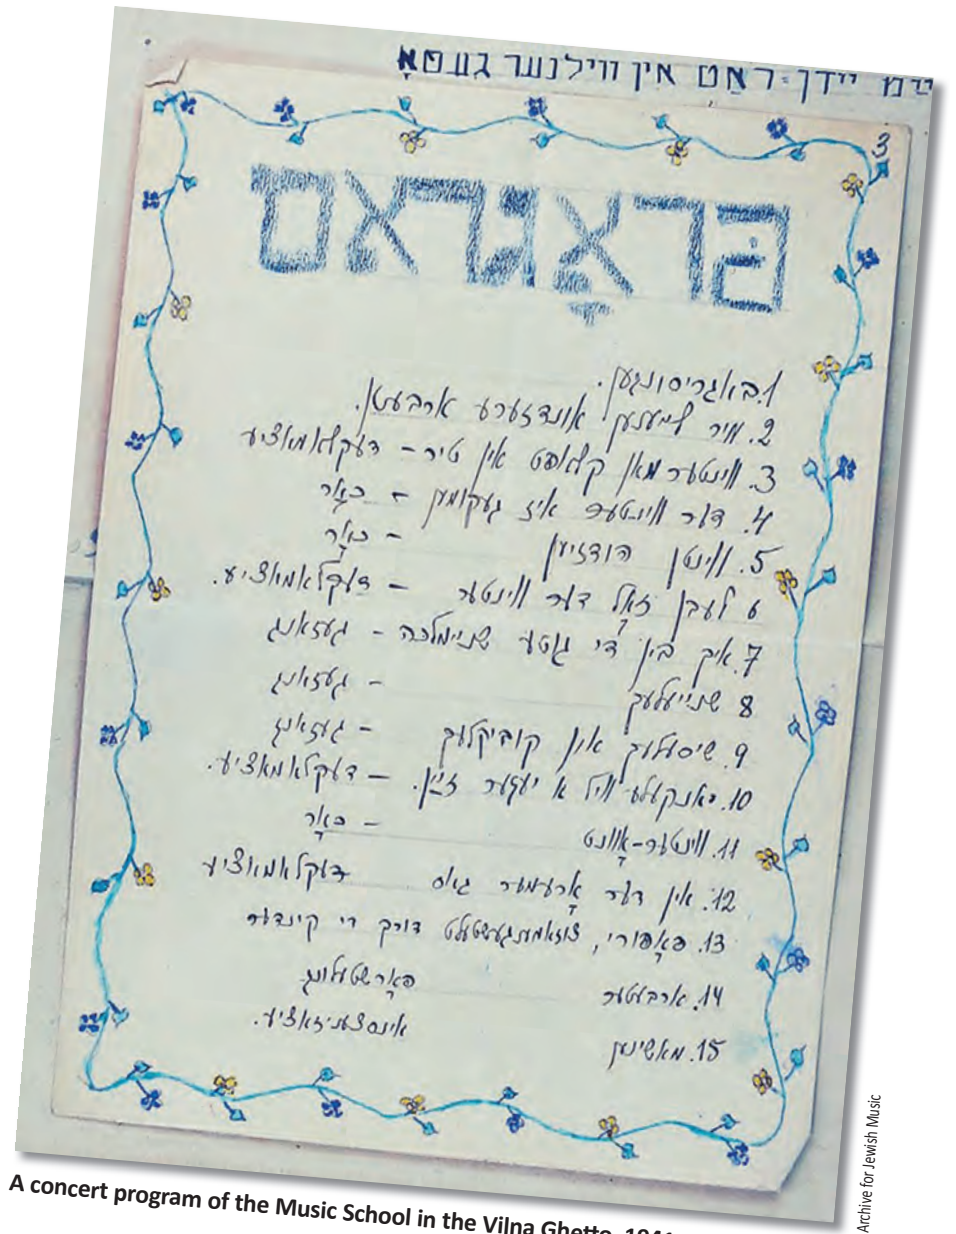 יידן־ראַט אין ווילנער געטאָ
3
פּראָגראַם
1. באַגריסונגען.
2. מיר לייענען אונדזערע ארבעטן.
3. ווינטער מאן קלאפט אין טיר – דעקלאמאציע
4. דער ווינטער איז געקומען – כאָר
5. ווינטן הודזשען – כאָר
6 לעבן זאָל דער ווינטער – דעקלאמאציע.
7. איך בין די גוטע שניימלכה – געזאנג
8 שנייעלעך – געזאנג
9. שיסעלעך און קוביקלעך – געזאנג
10. יאנקעלע וויל א יעגער זיין. – דעקלאמאציע.
11. ווינטער-אָוונט – כאָר
12. אין דער אָרעמער גאס דעקלאמאציע
13. פּאָפּורי, צוזאמענגעשטעלט דורך די קינדער
14. ארבעטער פאָרשטעלונג
15. מאשינען אינסצעניזאציע.
A concert program of the Music School in the Vilna Ghetto,
Archive for Jewish Music